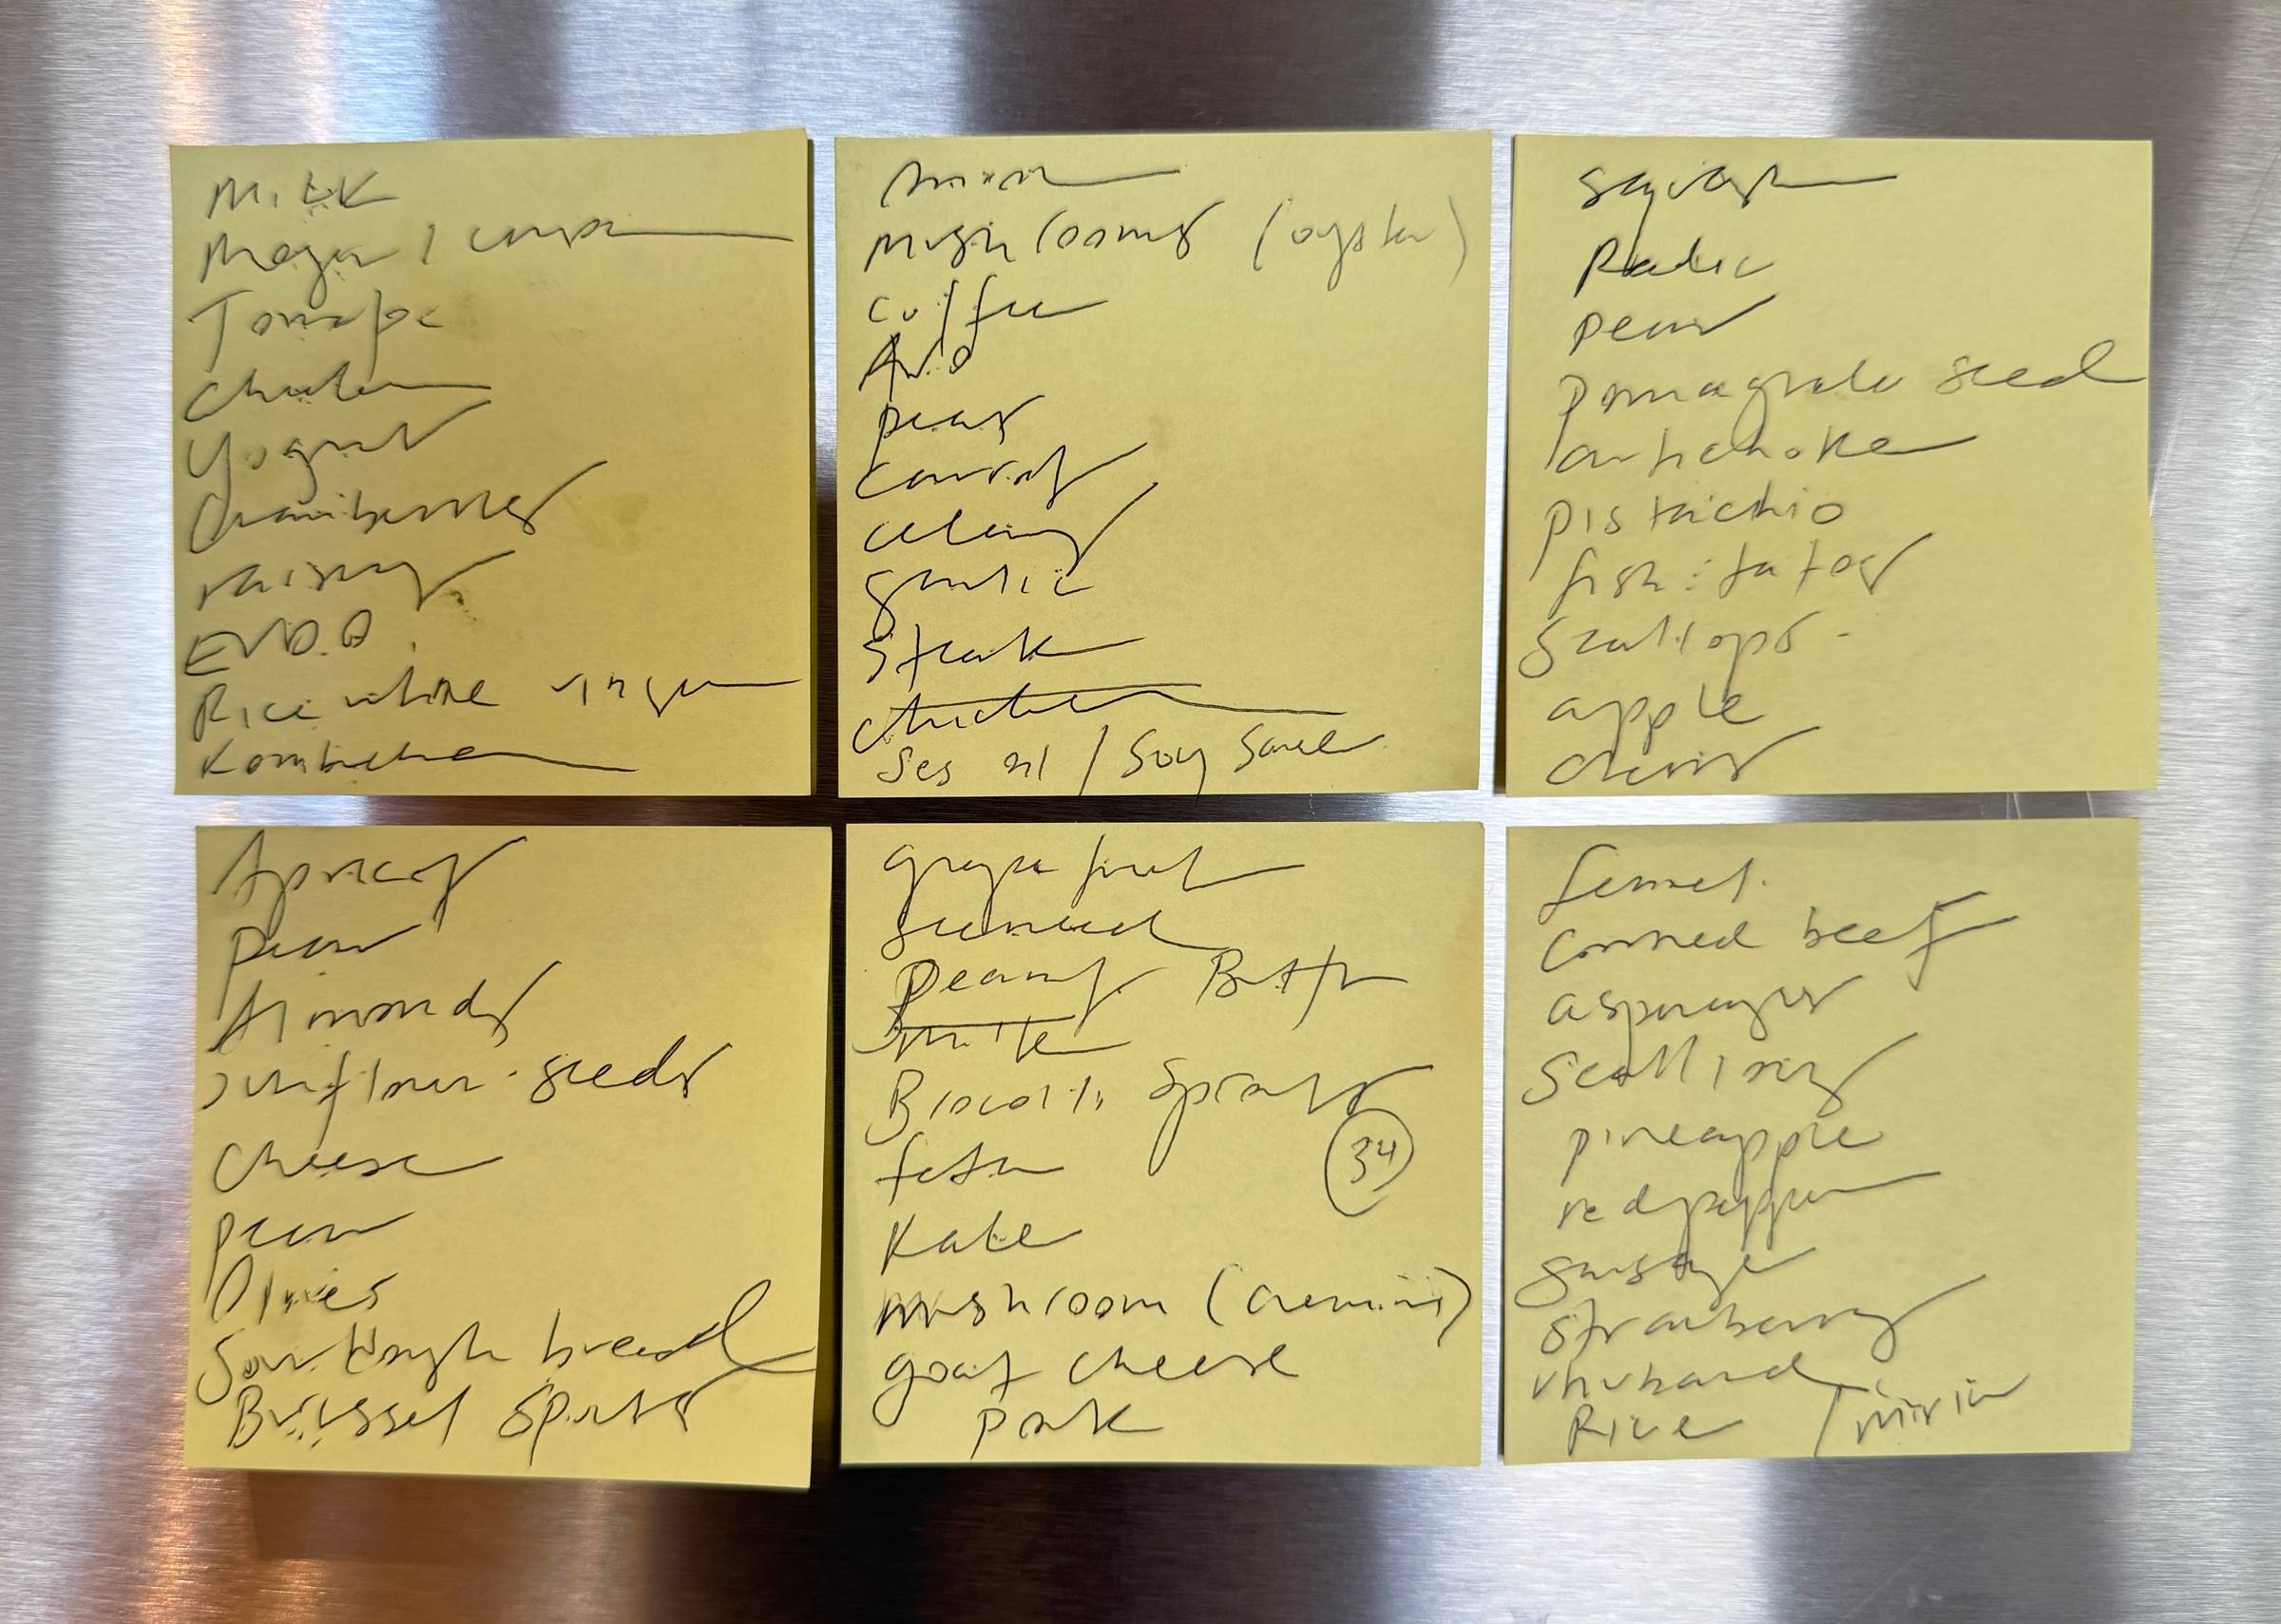 Milk
Tomato
Chicken
Yogurt
Cranberries
raisins
EVOO.
Rice wine vinegar
Kombucha
onion
Mushrooms (oyster)
coffee
Avo
peas
carrot
celery
garlic
Steak
chicken
Ses oil / Soy Sauce
Squash
Radic
pears
pomagrate seed
artichoke
pistaichio
fish: tatos
Scallops -
apple
cherris
Apricot
Almonds
sunflower seeds
Cheese
Olives
Sourdough bread
Brussel Sprouts
grapefruit
seaweed
Peanut Butter
milk
Broccoli Sprouts
feta
34
Kale
mushroom (cremini)
goat cheese
Pork
fennel.
corned beef
asparagus
Scallions
pineapple
red pepper
sausage
strawberry
rhubard
Rice / mirin